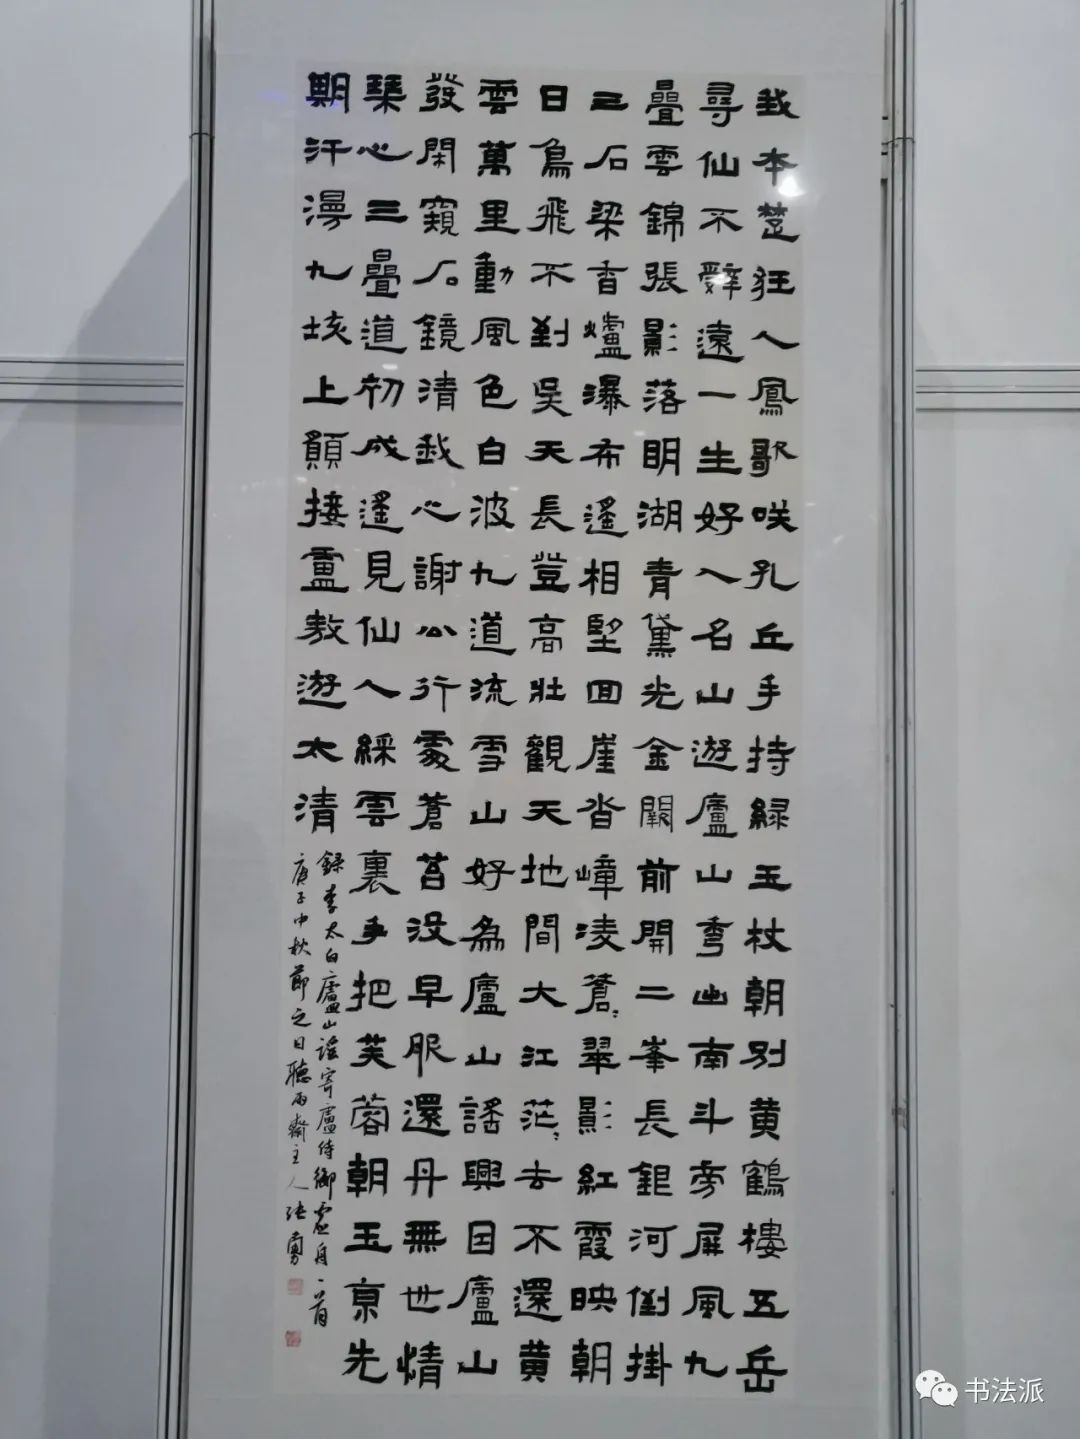 我本楚狂人鳳歌咲孔丘手持緑玉杖朝別黄鶴樓五岳
尋仙不辭遠一生好入名山遊廬山秀出南斗旁屏風九
疊雲錦張影落明湖青黛光金闕前開二峯長銀河倒掛
三石梁香爐瀑布遙相望回崖沓嶂凌蒼〻翠影紅霞映朝
日鳥飛不到吳天長登高壯觀天地間大江茫〻去不還黄
雲萬里動風色白波九道流雪山好為廬山謠興因廬山
發閑窺石鏡清我心謝公行處蒼苔没早服還丹無世情
琴心三疊道初成遙見仙人綵雲裏手把芙蓉朝玉京先
期汗漫九垓上願接盧敖遊太清
録李太白廬山謠寄盧侍御虚舟一首
庚子中秋節之日聽雨齋主人張勇
书法派